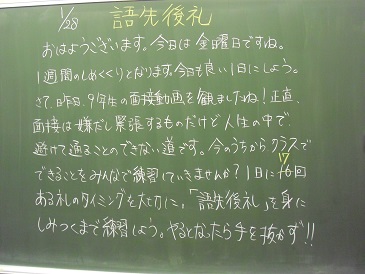 1/28 語先後礼
おはようございます。今日は金曜日ですね。
1週間のしめくくりとなります。今日も良い1日にしよう。
さて、昨日、9年生の面接動画を観ましたね!正直、
面接は嫌だし緊張するものだけど人生の中で、
避けて通ることのできない道です。今のうちからクラスで
できることをみんなで練習していきませんか?1日に17回
ある礼のタイミングを大切に、「語先後礼」を身に
しみつくまで練習しよう。やるとなったら手を抜かず!!